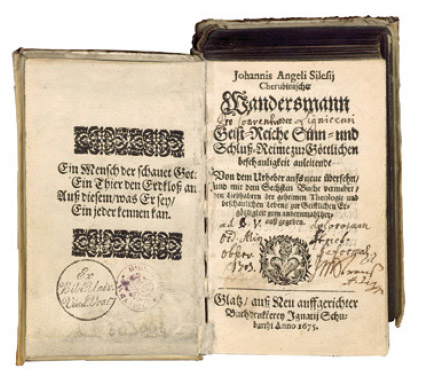 Ein Mensch der schauet Got:
Ein Thier den Erdkloß an
Auß diesem/was Er sey/
Ein jeder kennen kan.
Ex
Bibl. Univ.
Johannis Angeli Silesij
Cherubinischer
Wandersmann
oder
Geist-Reiche Sinn- und
Schluß-Reime zur Göttlichen
beschauligkeit anleitende
Von dem Urheber auffs neue übersehn/
und mit dem Sechsten Buche vermehrt/
den Liebhabern der geheimen Theologie und
beschaulichen Lebens zur Geistlichen Er-
götzligkeit zum andernmahl her-
auß gegeben.
1703.
Glatz/ auß Neu auffgerichter
Buchdruckerey Ignatij Schu-
barthi Anno 1675.